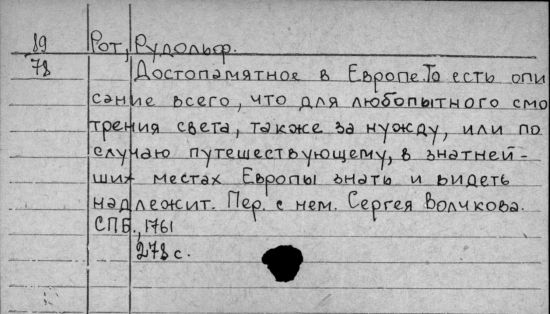 89 Рот, Рудольф.
78 Достопамятное в Европе. То есть опи
сание всего, что для любопытного смо
трения света, также за нужду, или по
случаю путешествующему, в знатней-
ших местах Европы знать и видеть
надлежит. Пер. с нем. Сергея Волчкова.
СПБ., 1761
278 с.